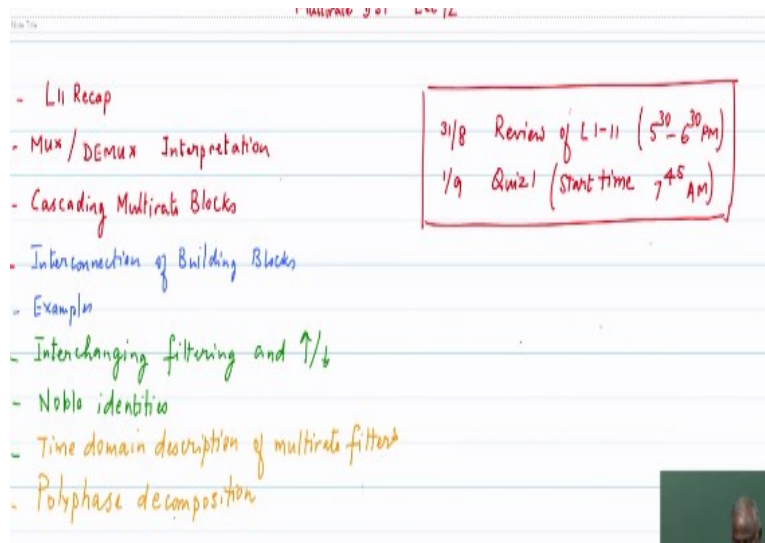 - L11 Recap
- Mux / DEMUX Interpretation
- Cascading Multirate Blocks
- Interconnection of Building Blocks
- Examples
- Interchanging filtering and ↑/↓
- Noble identities
- Time domain description of multirate filters
- Polyphase decomposition
31/8 Review of L1-11 (5³⁰-6³⁰ PM)
1/9 Quiz 1 (Start time 7⁴⁵ AM)